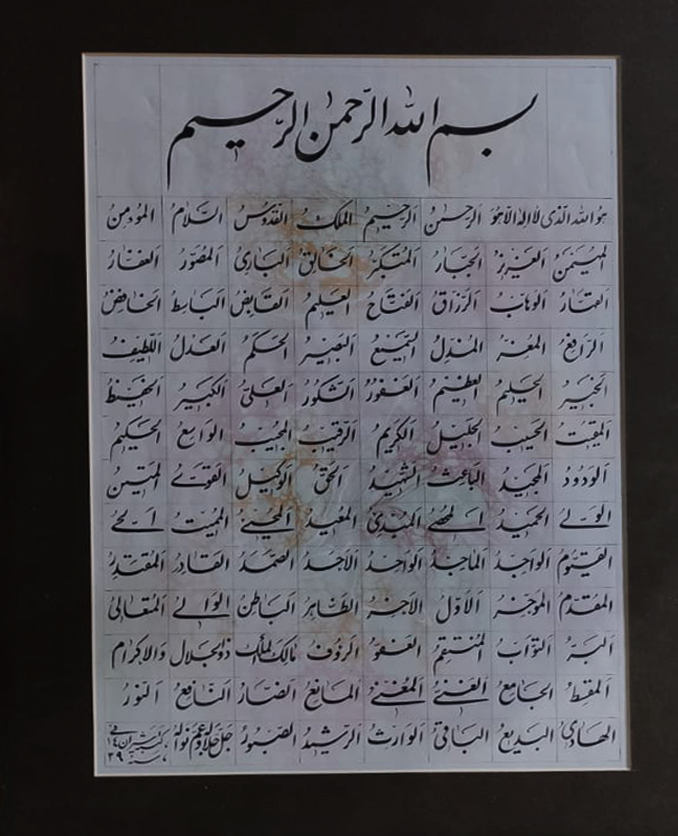 بسم الله الرّحمن الرّحيم
هُوَ الله الَّذی لا اِلٰهَ اِلّا هُوَ اَلرَّحمٰنُ اَلرَّحیمُ اَلمَلِکُ اَلقُدّوسُ اَلسَّلامُ اَلمُؤمِنُ
اَلمُهَیمِنُ اَلعَزیزُ اَلجَبّارُ اَلمُتَکَبِّرُ اَلخالِقُ اَلبارِئُ اَلمُصَوِّرُ اَلغَفّارُ
اَلقَهّارُ اَلوَهّابُ اَلرَّزّاقُ اَلفَتّاحُ اَلعَلیمُ اَلقابِضُ اَلباسِطُ اَلخافِضُ
اَلرّافِعُ اَلمُعِزُّ اَلمُذِلُّ اَلسَّمیعُ اَلبَصیرُ اَلحَکَمُ اَلعَدلُ اَللَّطیفُ
اَلخَبیرُ اَلحَلیمُ اَلعَظیمُ اَلغَفورُ اَلشَّکورُ اَلعَلیُّ اَلکَبیرُ اَلحَفیظُ
اَلمُقیتُ اَلحَسیبُ اَلجَلیلُ اَلکَریمُ اَلرَّقیبُ اَلمُجیبُ اَلواسِعُ اَلحَکیمُ
اَلوَدودُ اَلمَجیدُ اَلباعِثُ اَلشَّهیدُ اَلحَقُّ اَلوَکیلُ اَلقَویُّ اَلمَتینُ
اَلوَلیُّ اَلحَمیدُ اَلمُحصی اَلمُبدِئُ اَلمُعیدُ اَلمُحیی اَلمُمیتُ اَلحَیُّ
اَلقَیّومُ اَلواجِدُ اَلماجِدُ اَلواحِدُ اَلاَحَدُ اَلصَّمَدُ اَلقادِرُ اَلمُقتَدِرُ
اَلمُقَدِّمُ اَلمُوَخِّرُ اَلاَوَّلُ اَلآخِرُ اَلظّاهِرُ اَلباطِنُ اَلوالی اَلمُتَعالی
اَلبَرُّ اَلتَّوّابُ اَلمُنتَقِمُ اَلعَفُوُّ اَلرَؤُفُ مالِکَ المُلک ذوالجلال والاکرام
اَلمُقسِطُ اَلجامِعُ اَلغَنیُّ اَلمُغنی اَلمانِعُ اَلضّارُّ اَلنّافِعُ اَلنّورُ
اَلهادی اَلبَدیعُ اَلباقی اَلوارِثُ اَلرَّشیدُ اَلصَّبورُ جَلَّ جَلالُهُ وَعَمَّ نَوالُهُ